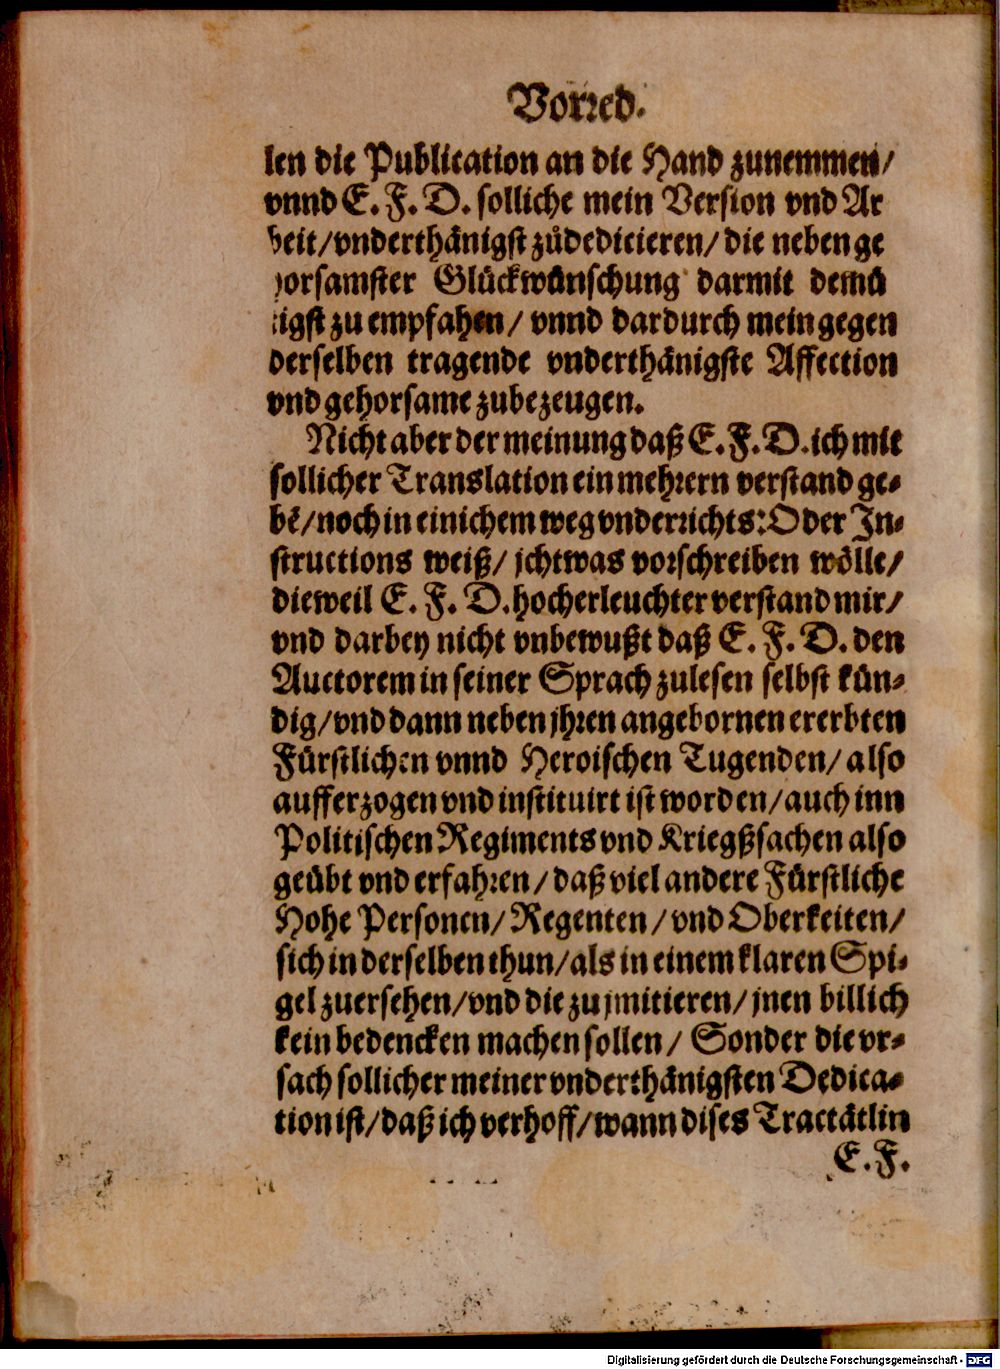 Vorred.
len die Publication an die Hand zunemmen/
vnnd E. F. D. solliche mein Version vnd Ar
beit/vnderthänigst zůdedicieren/ die neben ge
horsamster Glückwünschung darmit demü
tigst zu empfahen/ vnnd dardurch mein gegen
derselben tragende vnderthänigste Affection
vnd gehorsame zubezeugen.
Nicht aber der meinung daß E. F. D. ich mit
sollicher Translation ein mehrern verstand ge-
bē/noch in einichem weg vnderrichts: Oder In-
structions weiß/ jchtwas vorschreiben wölle/
dieweil E. F. D. hocherleuchter verstand mir/
vnd darbey nicht vnbewußt daß E. F. D. den
Auctorem in seiner Sprach zulesen selbst kün-
dig/vnd dann neben jhren angebornen ererbten
Fürstlichen vnnd Heroischen Tugenden/ also
aufferzogen vnd instituirt ist worden/auch inn
Politischen Regiments vnd Kriegßsachen also
geübt vnd erfahren/ daß viel andere Fürstliche
Hohe Personen/ Regenten/ vnd Oberkeiten/
sich in derselben thun/als in einem klaren Spi-
gel zuersehen/vnd die zu jmitieren/ jnen billich
kein bedencken machen sollen/ Sonder die vr-
sach sollicher meiner vnderthänigsten Dedica-
tion ist/daß ich verhoff/wann dises Tractätlin
E. F.
Digitalisierung gefördert durch die Deutsche Forschungsgemeinschaft - DFG